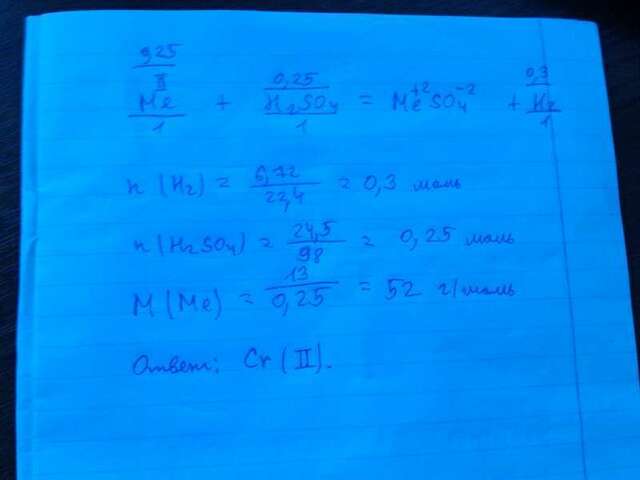 0,25 0,25 0,3
II
Me + H₂SO₄ = Me⁺²SO₄⁻² + H₂
1 1 1
n (H₂) = 6,72 / 22,4 = 0,3 моль
n (H₂SO₄) = 24,5 / 98 = 0,25 моль
M (Me) = 13 / 0,25 = 52 г/моль
Ответ: Cr (II).